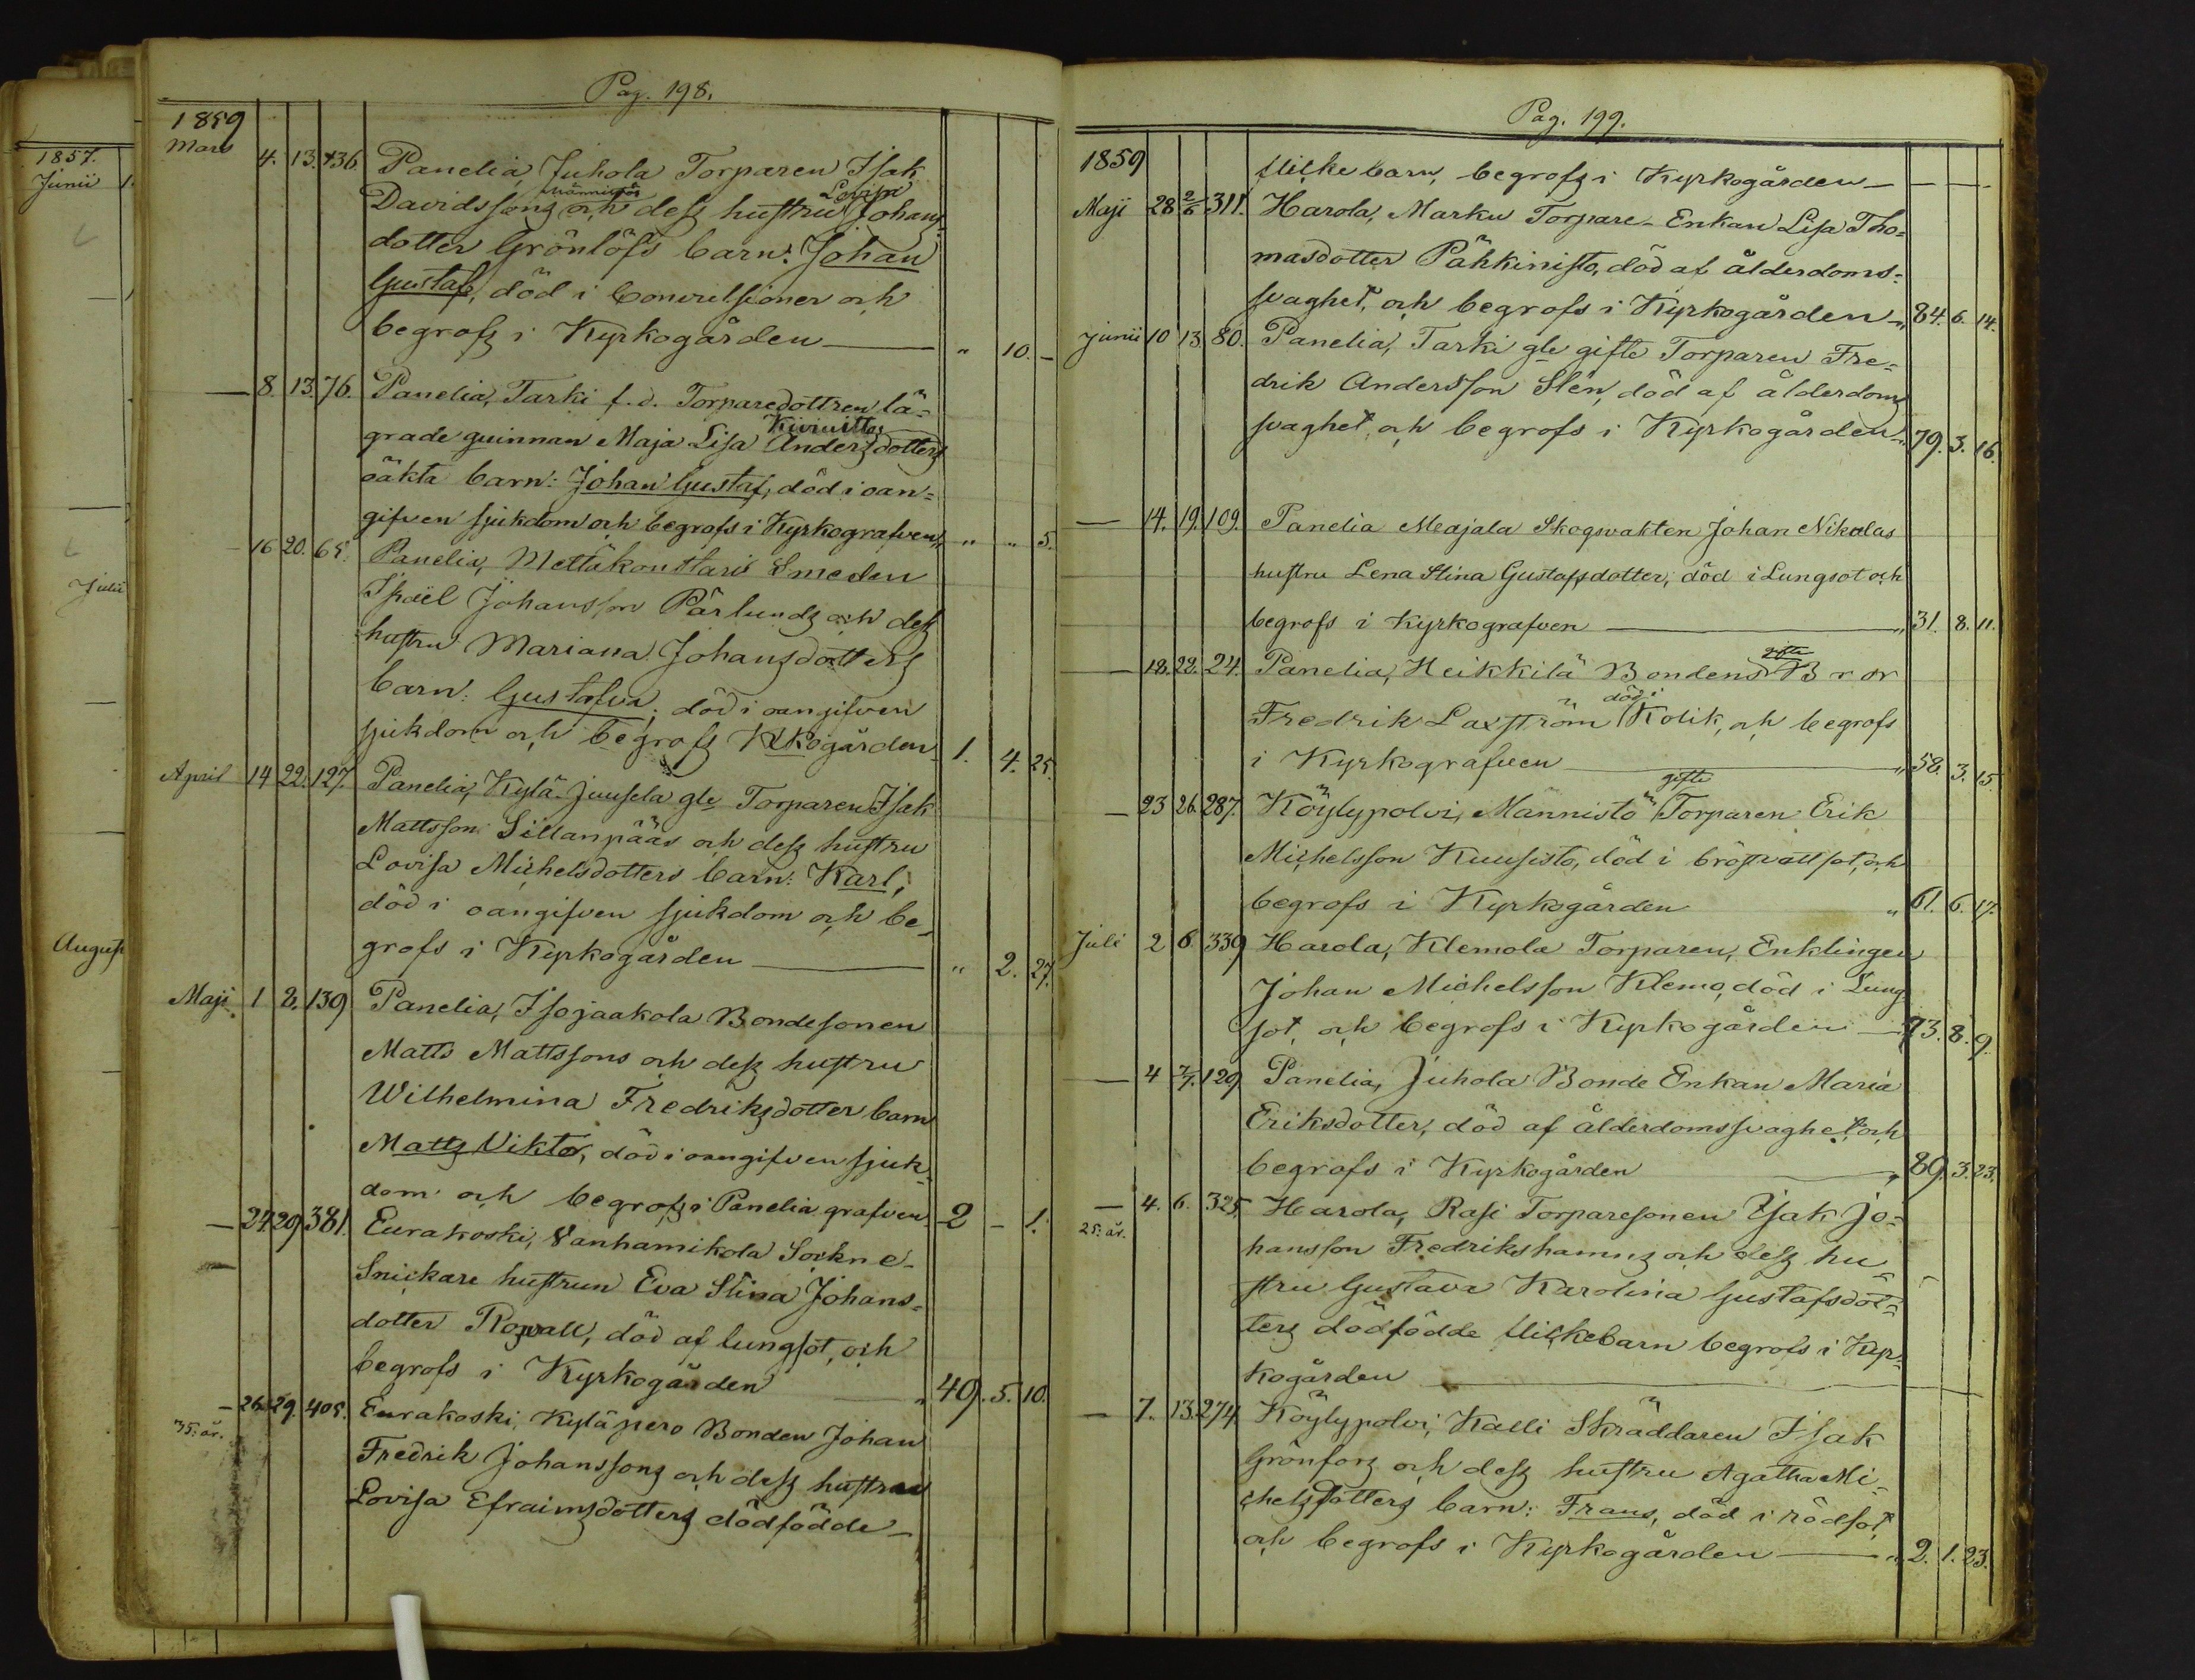 Pag. 198.
1859
Mars 4. 13. 136. Panelia, Juhola Torparen Isak
Männistös Lovisa
Davidssons och dess hustru Johans-
dotter Grönlöfs barn: Johan
Gustaf, död i Convulsioner och
begrofs i Kyrkogården — „ 10. –
— 8. 13. 76. Panelia, Tarki f.d. Torparedottren lä-
Kivinittos
grade quinnan Maja Lisa Andersdotters
oäkta barn: Johan Gustaf, död i oan-
gifven sjukdom och begrofs i Kyrkografven „ „ 5.
– 16 20. 65. Panelia, Mettäkonstari Smeden
Isräel Johansson Pärlunds och dess
hustru Mariana Johansdotters
barn: Gustafva, död i oangifven
sjukdom och begrofs Kkogården 1. 4. 25.
April 14 22. 127. Panelia, Kylä-Juusela gle Torparen Isak
Mattsson Sillanpääs och dess hustru
Lovisa Michelsdotters barn: Karl,
död i oangifven sjukdom och be-
grofs i Kyrkogården — „ 2. 27.
Maji 1 2. 139 Panelia, Isojaakola Bondesonen
Matts Mattssons och dess hustru
Wilhelmina Fredriksdotter barn
Matts Viktor, död i oangifven sjuk-
dom och begrofs i Panelia grafven 2 – 1.
— 24 29 381. Eurakoski, Vanhamikola Sockne-
Snickare hustrun Eva Stina Johans-
dotter Roswall, död af lungsot, och
begrofs i Kyrkogården „ 49. 5. 10.
– 26. 29. 405. Eurakoski, Kyläpero Bonden Johan
35: år.
Fredrik Johanssons och dess hustrus
Lovisa Efraimsdotters dödfödde
Pag. 199.
1859 flicke barn, begrofs i Kyrkogården — — —
Maji 28 2/6 311. Harola, Marku Torpare-Enkan Lisa Tho-
masdotter Pähkinisto, död af ålderdoms-
svaghet, och begrofs i Kyrkogården „ 84. 6. 14.
Junii 10 13. 80. Panelia, Tarki gle gifte Torparen Fre-
drik Andersson Slén, död af ålderdoms
svaghet, och begrofs i Kyrkogården „ 79. 3. 16.
— 14. 19. 109. Panelia Meajala Skogsvakten Johan Nikolas
hustru Lena Stina Gustafsdotter, död i Lungsot och
begrofs i Kyrkografven — „ 31. 8. 11.
gifte
— 18. 22. 24. Panelia, Heikkilä Bondens Bror
död i
Fredrik Laxström Kolik, och begrofs
i Kyrkografven — „ 58. 3. 15
gifte
— 23 26. 287. Köylypolvi, Männistö Torparen Erik
Michelsson Kuusisto, död i bröstvattsot, och
begrofs i Kyrkogården „ 61. 6. 17.
Juli 2 6. 339 Harola, Klemola Torparen, Enklingen
Johan Michelsson Klemo, död i Lung
sot, och begrofs i Kyrkogården — 73. 8. 9.
— 4 7/7. 129 Panelia, Juhola Bonde Enkan Maria
Eriksdotter, död af ålderdomssvaghet, och
begrofs i Kyrkogården — „ 89. 3. 23.
— 4. 6. 325. Harola, Rasi Torparesonen Isak Jo-
25: år.
hansson Fredrikshamns och dess hu-
stru Gustava Karolina Gustafsdot-
ters dödfödde flickebarn begrofs i Kyr-
kogården —
— 7. 13. 274 Köylypolvi, Kalli Skräddaren Isak
Grönfors och dess hustru Agatha Mi-
chelsdotters barn: Frans, död i rödsot,
och begrofs i Kyrkogården — „ 2. 1. 23.
1857.
Junii 1.
Julii
August